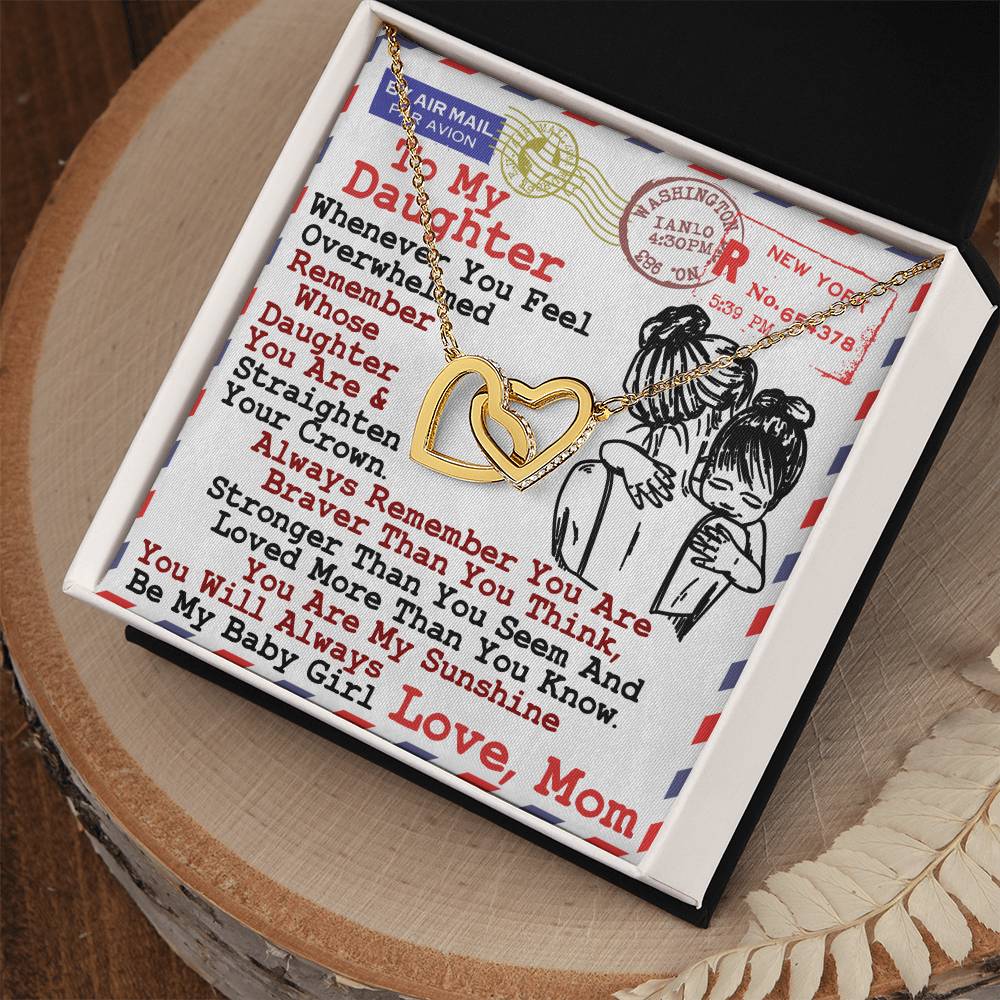 BY AIR MAIL
PAR AVION
WASHINGTON
IAN10
4:30PM
NO. 983
R
NEW YORK
No.654378
5:39 PM
To My
Daughter
Whenever You Feel
Overwhelmed
Remember
Whose
Daughter
You Are &
Straighten
Your Crown.
Always Remember You Are
Braver Than You Think,
Stronger Than You Seem And
Loved More Than You Know.
You Are My Sunshine
You Will Always
Be My Baby Girl
Love, Mom